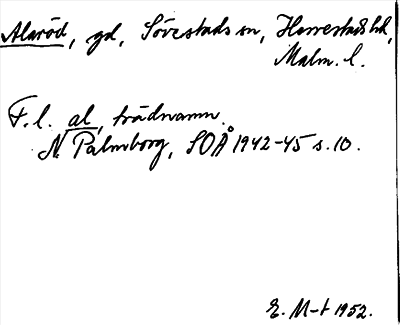 Alaröd, gd, Sövestads sn, Herrestads hd,
Malm. l.
F. l. al, trädnamn.
N Palmborg, SOÅ 1942-45 s. 10.
E. M-t 1952.